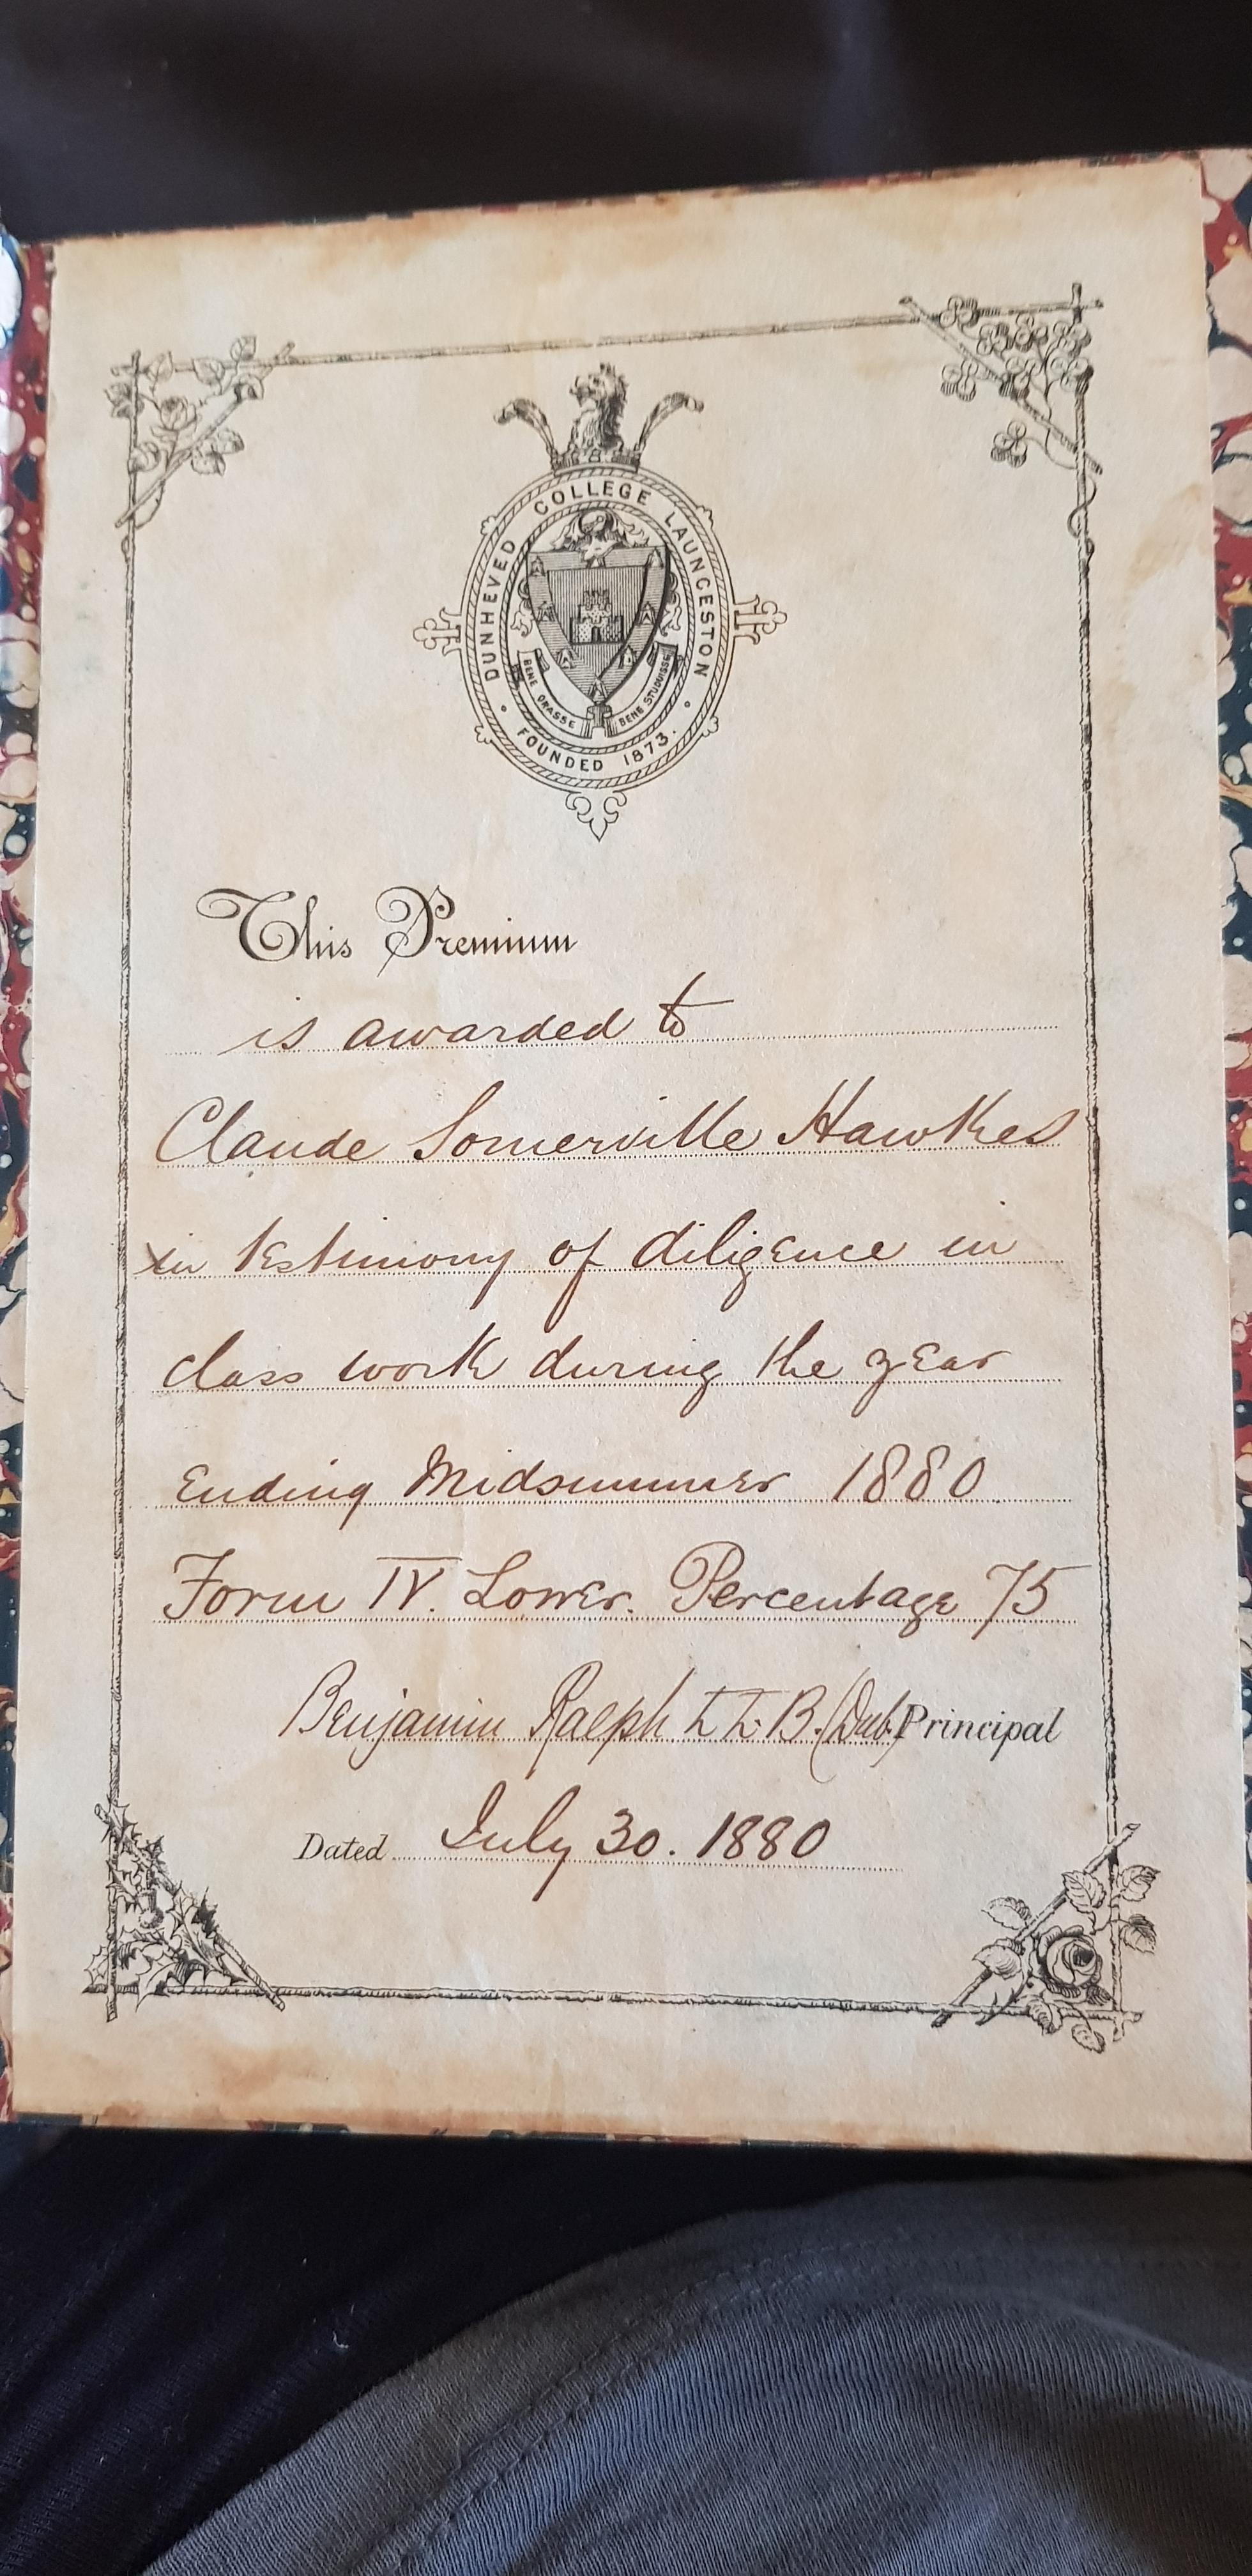 DUNHEVED COLLEGE LAUNCESTON
BENE ORASSE BENE STUDUISSE
FOUNDED 1873.
This Premium
is awarded to
Claude Somerville Hawkes
in testimony of diligence in
class work during the year
Ending Midsummer 1880
Form IV. Lower. Percentage 75
Benjamin Ralph L L B. (Dub.) Principal
Dated July 30. 1880